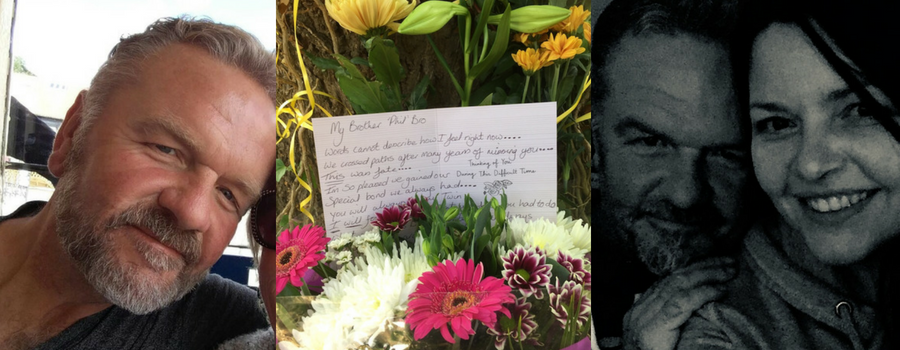 My Brother Phil Bro
Words cannot describe how I feel right now....
We crossed paths after many years of missing you....
This was fate....
Im so pleased we gained our
Special bond we always had....
you will always twin you had to do
I will
Thinking of You
During This Difficult Time